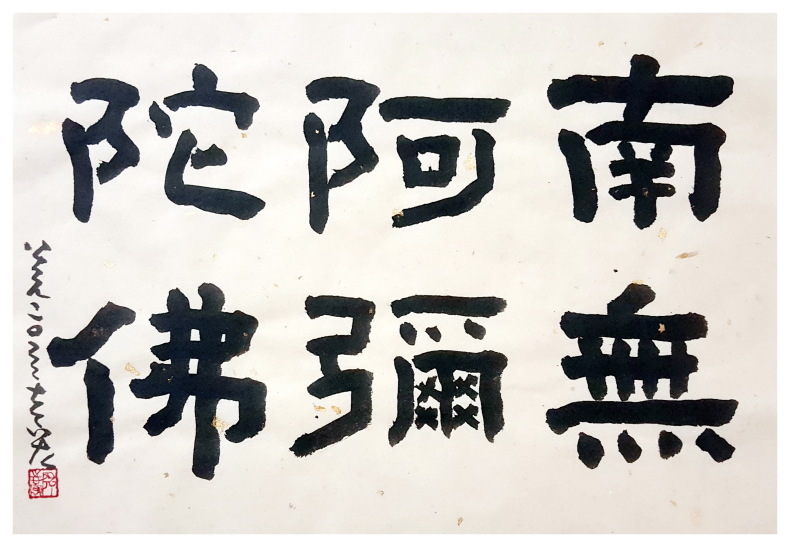 南無
阿彌
陀佛